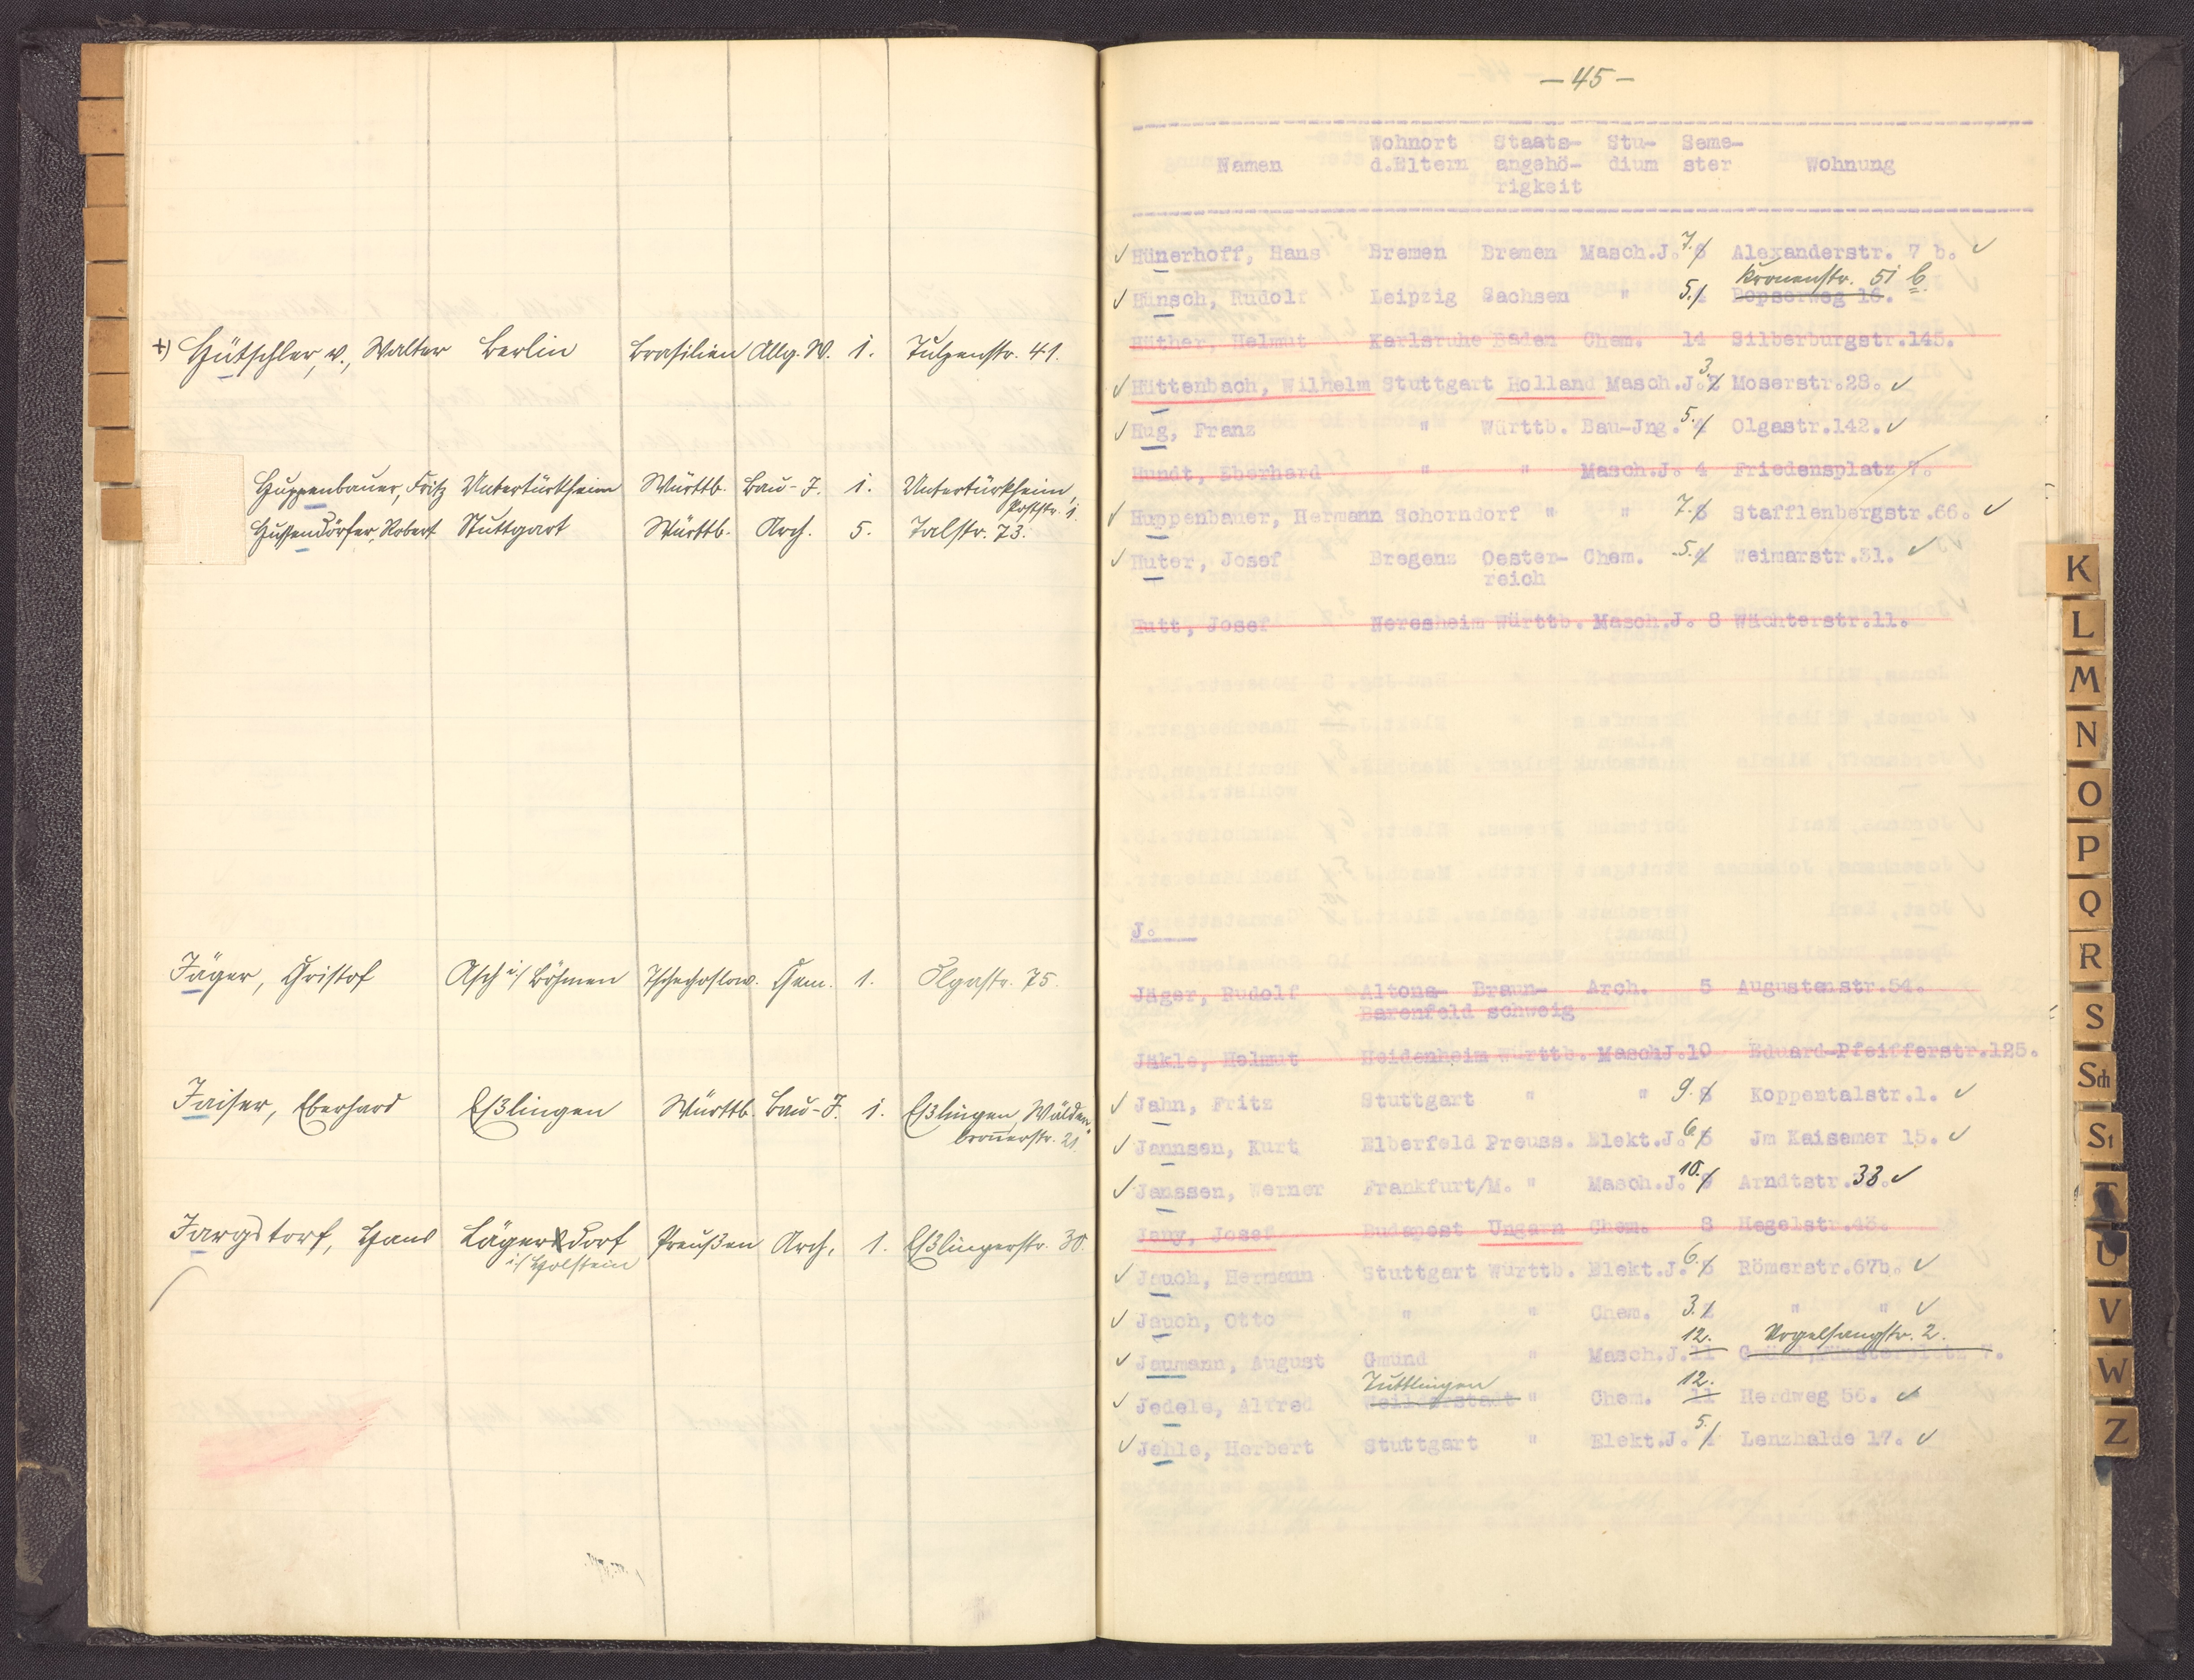 +) Hütschler, v., Walter Berlin Brasilien Allg. W. 1. Tulpenstr. 41.
Huppenbauer, Fritz Untertürkheim Württb. Bau-J. 1. Untertürkheim,
Poststr. 1.
Hussendörfer, Robert Stuttgart Württb. Arch. 5. Talstr. 73.
Jäger, Christof Asch i/ Böhmen Tschechoslow. Chem. 1. Olgastr. 75.
Jaiser, Eberhard Eßlingen Württb. Bau-J. 1. Eßlingen, Wälden-
bronnerstr. 21.
Jargstorf, Hans Lägerdorf Preußen Arch. 1. Eßlingerstr. 30.
i/ Holstein
- 45 -
Wohnort Staats- Stu- Seme-
Namen d.Eltern angehö- dium ster Wohnung
rigkeit
Hünerhoff, Hans Bremen Bremen Masch.J. 7. 6 Alexanderstr. 7 b.
Kronenstr. 51 b.
Hünsch, Rudolf Leipzig Sachsen " 5. 4 Bopserweg 16.
Hüther, Helmut Karlsruhe Baden Chem. 14 Silberburgstr.145.
Hüttenbach, Wilhelm Stuttgart Holland Masch.J. 3. 2 Moserstr.28.
Hug, Franz " Württb. Bau-Jng. 5. 4 Olgastr.142.
Hundt, Eberhard " " Masch.J. 4 Friedensplatz 7.
Huppenbauer, Hermann Schorndorf " " 7. 6 Stafflenbergstr.66.
Huter, Josef Bregenz Oester- Chem. 5. 4 Weimarstr.31.
reich
Hutt, Josef Neresheim Württb. Masch.J. 8 Wächterstr.11.
J.
Jäger, Rudolf Altona- Braun- Arch. 5 Augustenstr.54.
Barenfeld schweig
Jäkle, Helmut Heidenheim Württb. MaschJ.10 Eduard-Pfeifferstr.125.
Jahn, Fritz Stuttgart " " 9. 8 Koppentalstr.1.
Jannsen, Kurt Elberfeld Preuss. Elekt.J. 6. 5 Jm Kaisemer 15.
Janssen, Werner Frankfurt/M. " Masch.J. 10. 9 Arndtstr.33.
Jany, Josef Budapest Ungarn Chem. 8 Hegelstr.43.
Jauch, Hermann Stuttgart Württb. Elekt.J. 6. 5 Römerstr.67b.
Jauch, Otto " " Chem. 3. 2 " "
12. Vogelsangstr. 2.
Jaumann, August Gmünd " Masch.J.11 Gmünd,Münsterplatz 7.
Tuttlingen 12.
Jedele, Alfred Weilderstadt " Chem. 11 Herdweg 56.
Jehle, Herbert Stuttgart " Elekt.J. 5. 4 Lenzhalde 17.
K
L
M
N
O
P
Q
R
S
Sch
St
T
U
V
W
Z